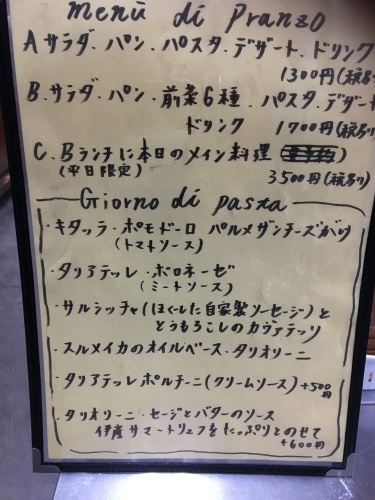 menu di Pranzo
A サラダ、パン、パスタ、デザート、ドリンク
1300円(税別)
B. サラダ、パン・前菜6種、パスタ、デザート
ドリンク 1700円(税別)
C. Bランチに本日のメイン料理 )
(平日限定) 3500円(税別)
Giorno di pasta
・キタッラ・ポモドーロ パルメザンチーズがけ
(トマトソース)
・タリアテッレ・ボロネーゼ
(ミートソース)
・サルシッチャ(ほぐした自家製ソーセージ)と
とうもろこしのカヴァテッリ
・スルメイカのオイルベース・タリオリーニ
・タリアテッレ ポルチーニ(クリームソース)+500円
・タリオリーニ・セージとバターのソース
伊産サマートリュフをたっぷりとのせて
+600円